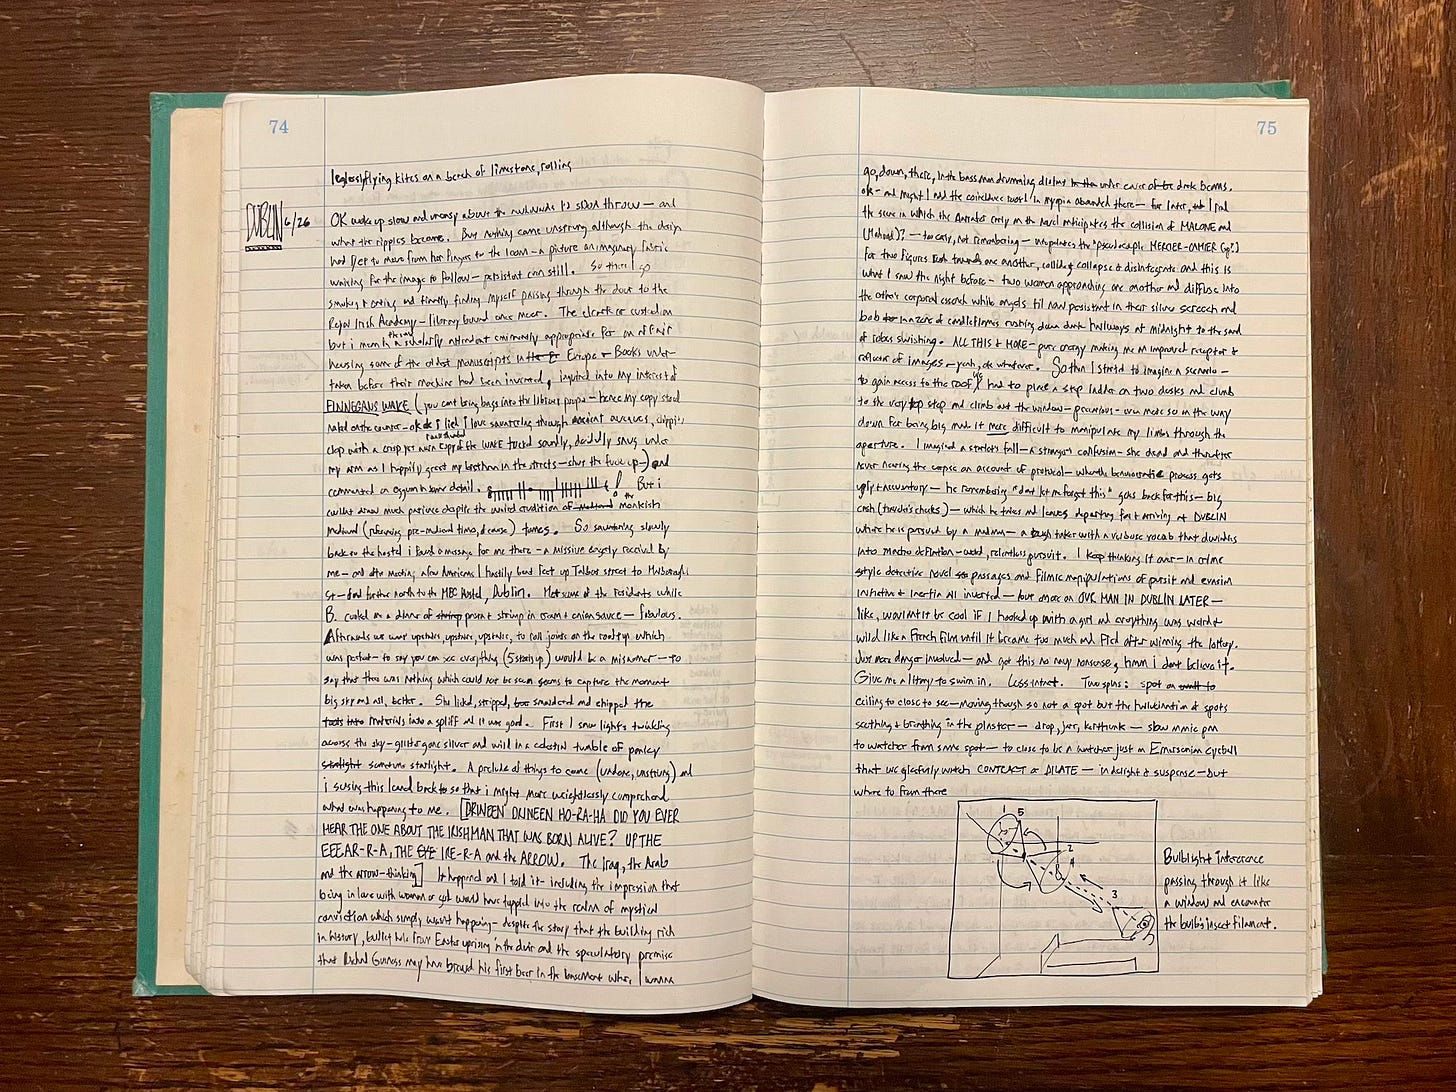 74
flying kites on a bench of limestone, rolling
DUBLIN 6/26
OK wake up slow and uneasy above the to throw — and
what the ripples become. But nothing came unstrung although the design
had yet to move from her fingers to the loom — a picture an imaginary fabric
waiting for the image to follow — persistent even still. So there I go
smoking & eating and finally finding myself passing through the door to the
Royal Irish Academy — library bound once more. The clerk or custodian
but i mean is a scholarly attendant eminently appropriate for an
housing some of the oldest manuscripts in the Europe Books under-
taken before their machine had been invented, inquired into my interest of
FINNEGANS WAKE (you can't bring bags into the library proper — hence my copy stood
naked on the counter — ok I lied I love sauntering through ancient avenues,
clop with a crisp yet copy of the WAKE tucked soundly, snug under
my arm as I happily greet my brethren in the streets — shut the fuck up —) and
commented on Oggum in some detail. ! But i
couldn't draw much patience despite the united erudition of the monkish
medieval (referencing pre-medieval times, of course) tomes. So sauntering slowly
back to the hostel i found a message for me there — a missive eagerly received by
me — and after meeting a few Americans I hastily beat feet up Talbot street to Marlborough
St — and further north to the MEC Hostel, Dublin. Met some of the residents while
B. cooked us a dinner of prawn & shrimp in cream & onion sauce — fabulous.
Afterwards we went upstairs, upstairs, upstairs, to roll joints on the rooftop which
was perfect — to say you can see everything (5 stories up) would be a misnomer — to
say that there was nothing which could not be seen seems to capture the moment
big sky and all, better. She licked, stripped, and chipped the
materials into a spliff and it was good. First I saw lights twinkling
across the sky — silver and wild in a celestial tumble of
starlight sometime starlight. A prelude of things to come (undone, unstrung) and
i seeing this leaned back so that i might more weightlessly comprehend
what was happening to me. [DRINEEN DRINEEN HO-RA-HA DID YOU EVER
HEAR THE ONE ABOUT THE IRISHMAN THAT WAS BORN ALIVE? UP THE
EEE AR-R-A, THE IRE-R-A and the ARROW. The Iraq, the Arab
and the arrow-thinking] It happened and I told it — including the impression that
being in love with woman or god would have toppled into the realm of mystical
conviction which simply wasn't happening — despite the story that the building rich
in history, bullet hole from Easter uprising in the door and the speculatory premise
that Richard Guinness may have brewed his first beer in the basement where I wanna
75
go, down, there, in the bass man drumming under cover of dark beams.
ok — and might I add the coincidence word in myopia abounded there — for later, but I feel
the scene in which the Narrator early in the novel anticipates the collision of MALONE and
(Mahood)? — too early, not remembering — the pseudocouple MERCIER-CAMIER (sp?)
for two figures towards one another, collide & collapse & disintegrate and this is
what I saw the night before — two women approaching one another and diffuse into
the other's corporal while angels til now persistent in their silver screech and
bob in a zone of candleflames rusting down dark hallways at midnight to the sound
of robes swishing. ALL THIS & MORE — pure energy making me an improved receptor &
reflector of images — yeah, ok whatever. So then I started to imagine a scenario —
to gain access to the roof we had to place a step ladder on two desks and climb
to the very top step and climb out the window — precarious — even more so in the way
down for being big made it more difficult to manipulate my limbs through the
aperture. I imagined a fall — a stranger's confusion — she dead and therefore
never nearing the corpse on account of protocol — process gets
ugly & accusatory — he remembering "don't let me forget this" goes back for this — big
cash (traveler's checks) — which he takes and leaves departing for & arriving at DUBLIN
where he is pursued by a madman — a tough talker with a verbose vocab that dwindles
into definition — weird, relentless pursuit. I keep thinking it over — in crime
style detective novel passages and filmic manipulations of pursuit and evasion
initiative & inertia all inverted — but more on OUR MAN IN DUBLIN LATER —
like, wouldn't it be cool if I hooked up with a girl and everything was weird &
wild like a French film until it became too much and fled after winning the lottery.
Just more danger involved — and got this no way nonsense, hmm i don't believe it.
Give me a litany to swim in. Less intact. Two spins: spot on
ceiling to close to see — moving though so not a spot but the hallucination of spots
seething & breathing in the plaster — drop, jar, kerthunk — slow
to watcher from same spot — to close to be a watcher just an Emersonian eyeball
that we gleefully watch CONTRACT & DILATE — in delight & suspense — but
where to from there
1
5
2
4
3
Bulblight inference
passing through it like
a window and encounter
the bulb's insect filament.